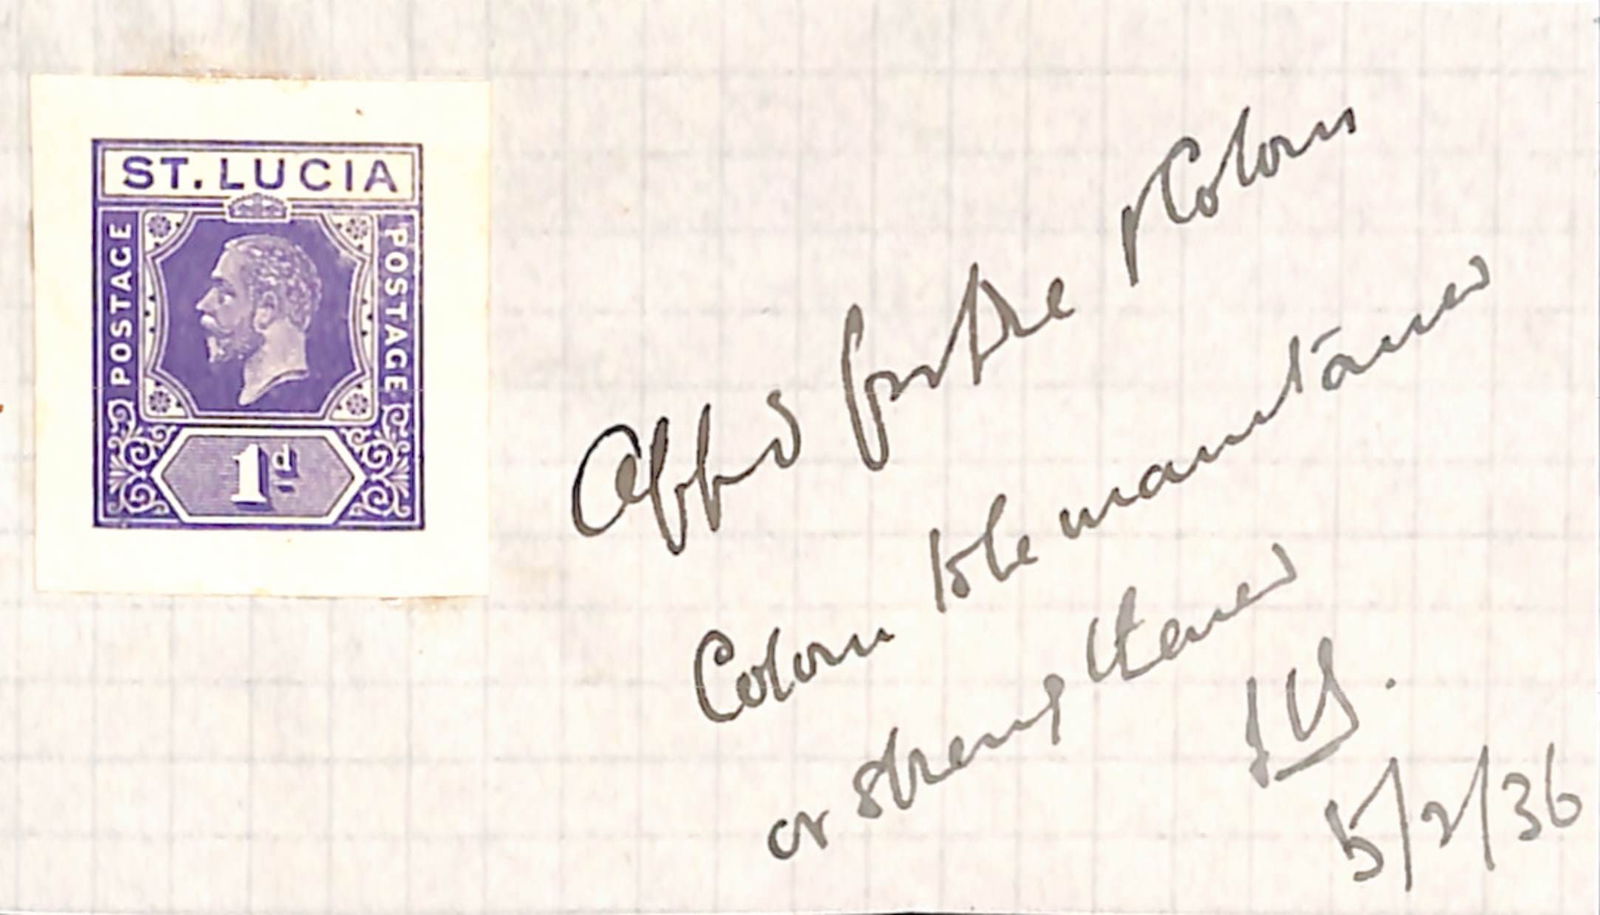 ST. LUCIA
POSTAGE
POSTAGE
1d
Appd for die & Colour
Colour to be maintained
or strengthened
5/2/36